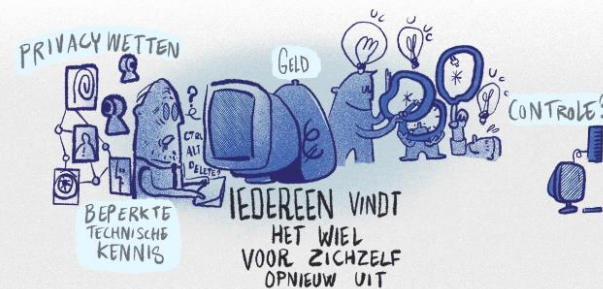 PRIVACY WETTEN
GELD
UC
UC
UC
UC
CONTROLE?
?
CTRL
ALT
DELETE?
BEPERKTE
TECHNISCHE
KENNIS
IEDEREEN VINDT
HET WIEL
VOOR ZICHZELF
OPNIEUW UIT